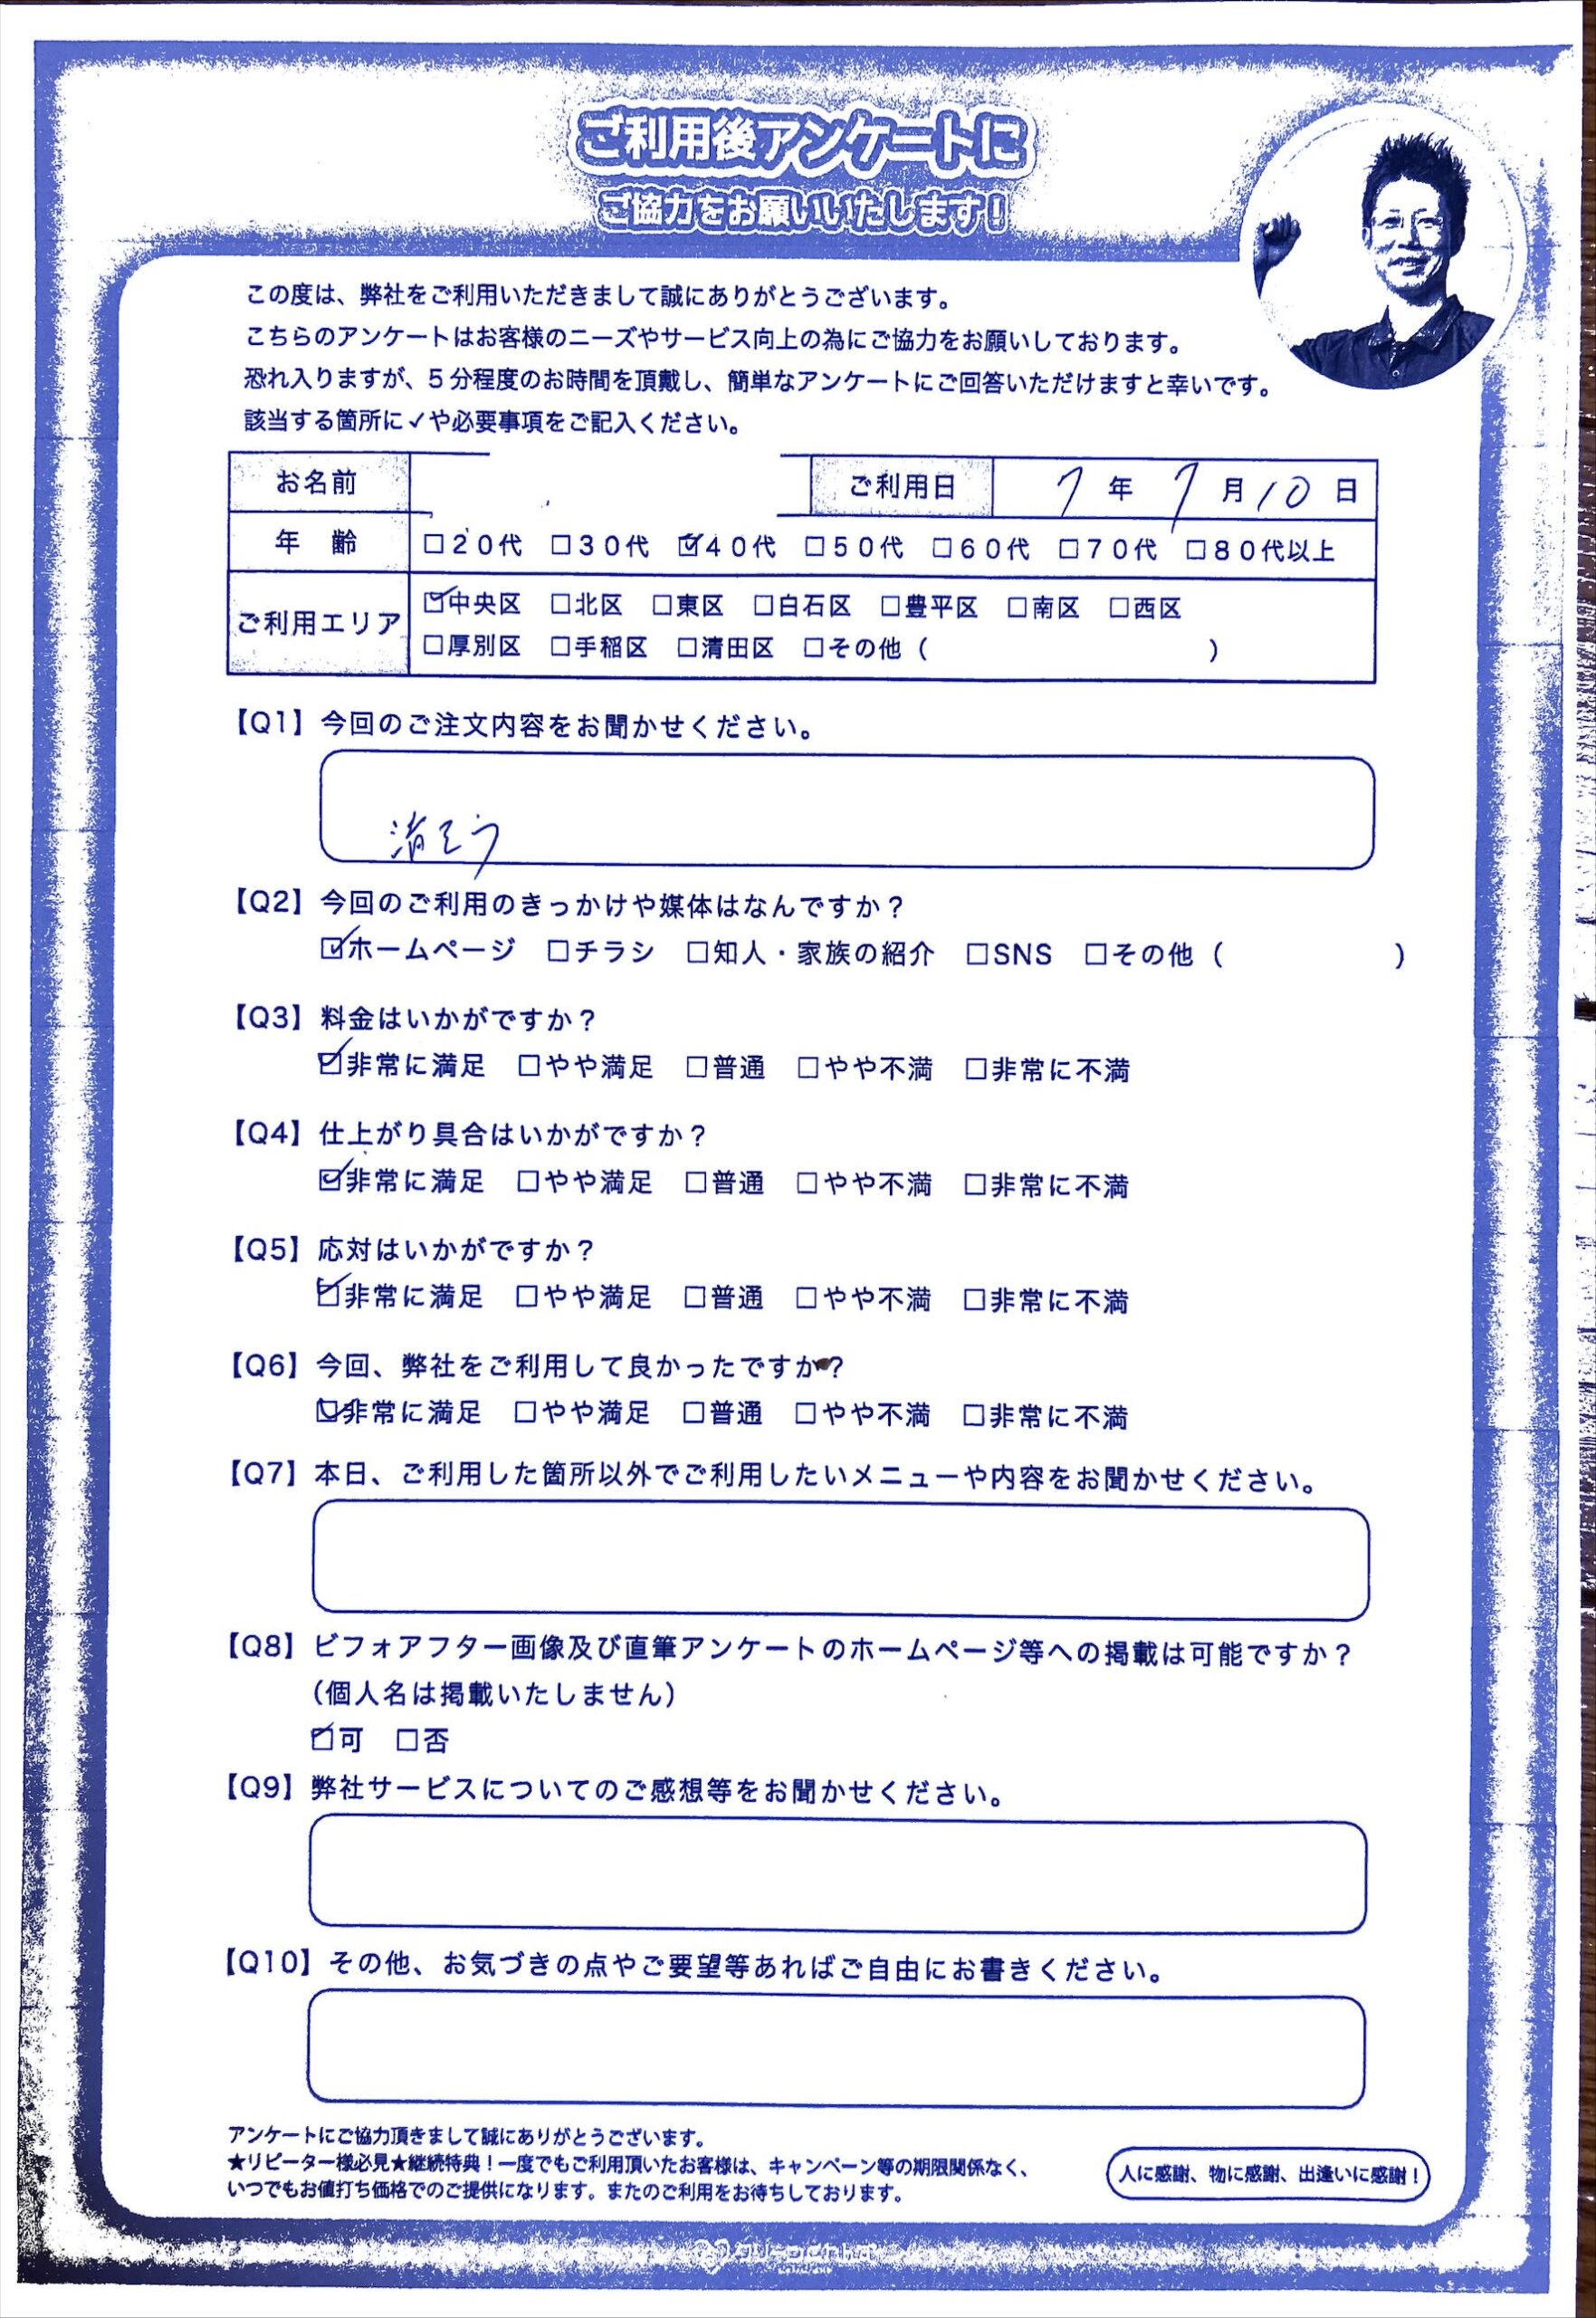 ご利用後アンケートに
ご協力をお願いいたします!
この度は、弊社をご利用いただきまして誠にありがとうございます。
こちらのアンケートはお客様のニーズやサービス向上の為にご協力をお願いしております。
恐れ入りますが、5分程度のお時間を頂戴し、簡単なアンケートにご回答いただけますと幸いです。
該当する箇所に✓や必要事項をご記入ください。
お名前 ご利用日 7年 7月10日
年 齢 □20代 □30代 ☑40代 □50代 □60代 □70代 □80代以上
ご利用エリア ☑中央区 □北区 □東区 □白石区 □豊平区 □南区 □西区
□厚別区 □手稲区 □清田区 □その他( )
【Q1】今回のご注文内容をお聞かせください。
清そう
【Q2】今回のご利用のきっかけや媒体はなんですか?
☑ホームページ □チラシ □知人・家族の紹介 □SNS □その他( )
【Q3】料金はいかがですか?
☑非常に満足 □やや満足 □普通 □やや不満 □非常に不満
【Q4】仕上がり具合はいかがですか?
☑非常に満足 □やや満足 □普通 □やや不満 □非常に不満
【Q5】応対はいかがですか?
☑非常に満足 □やや満足 □普通 □やや不満 □非常に不満
【Q6】今回、弊社をご利用して良かったですか?
☑非常に満足 □やや満足 □普通 □やや不満 □非常に不満
【Q7】本日、ご利用した箇所以外でご利用したいメニューや内容をお聞かせください。
【Q8】ビフォアフター画像及び直筆アンケートのホームページ等への掲載は可能ですか?
(個人名は掲載いたしません)
☑可 □否
【Q9】弊社サービスについてのご感想等をお聞かせください。
【Q10】その他、お気づきの点やご要望等あればご自由にお書きください。
アンケートにご協力頂きまして誠にありがとうございます。
★リピーター様必見★継続特典!一度でもご利用頂いたお客様は、キャンペーン等の期限関係なく、
いつでもお値打ち価格でのご提供になります。またのご利用をお待ちしております。
人に感謝、物に感謝、出逢いに感謝!